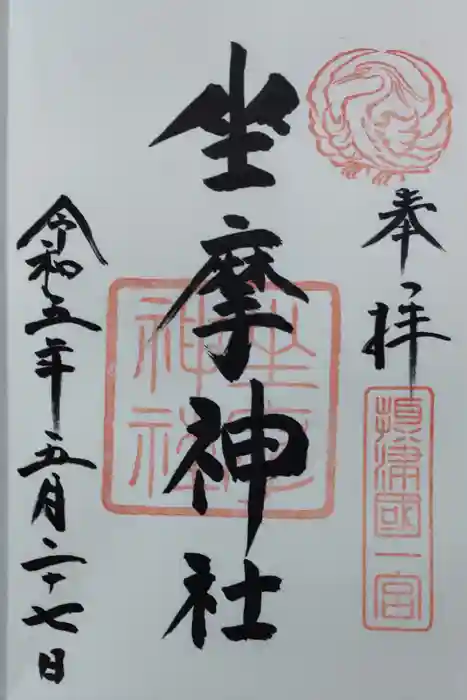 奉拝
摂津國一宮
坐摩神社
坐摩神社
令和五年五月二十七日